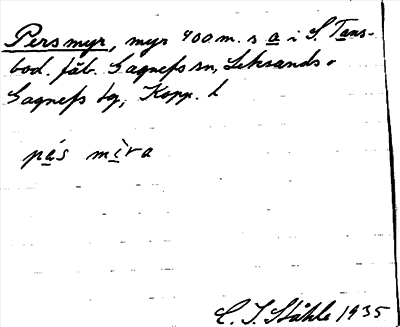 Persmyr, myr 400 m. s a i S Tans-
bod. fäb. Gagnefs sn, Leksands o
Gagnefs tg, Kopp. l
pás mìra
C. I. Ståhle 1935